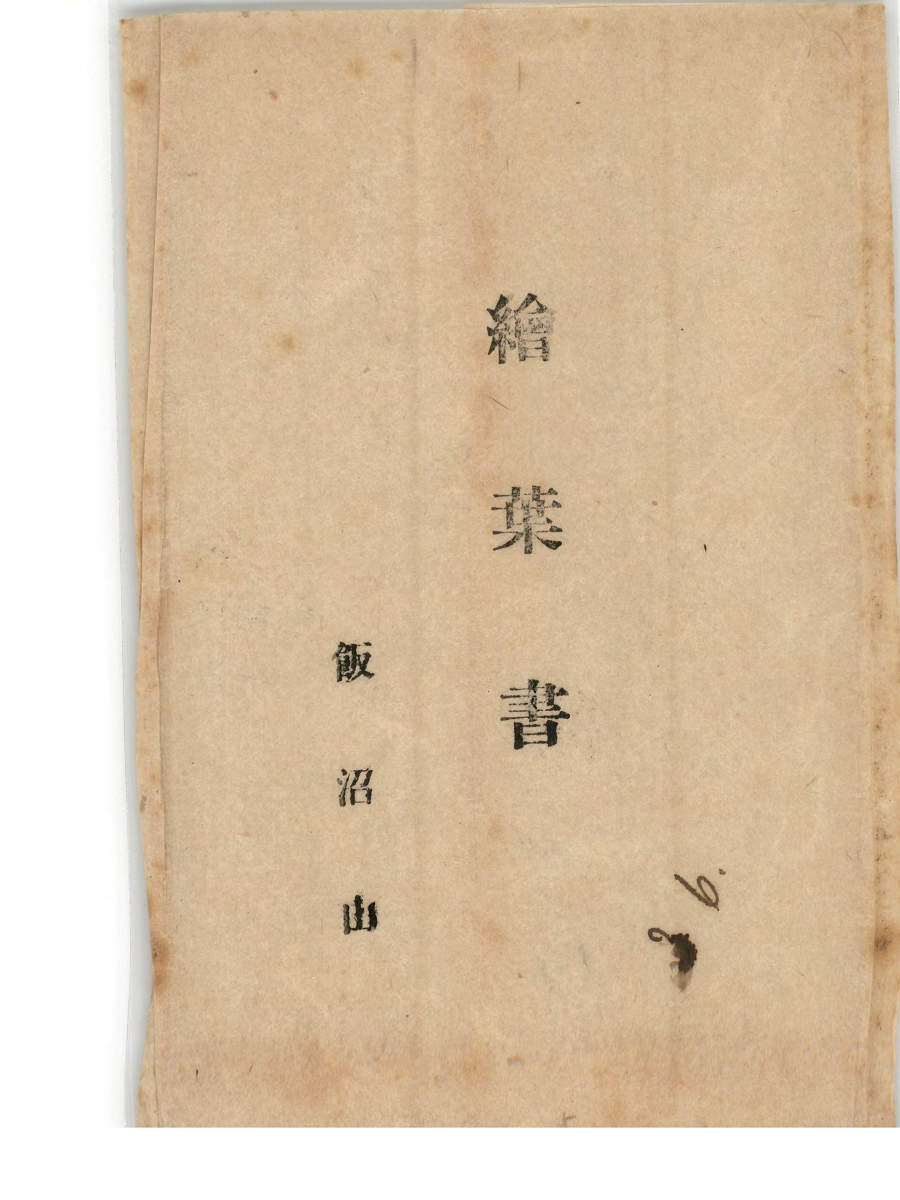 繪葉書
飯沼山